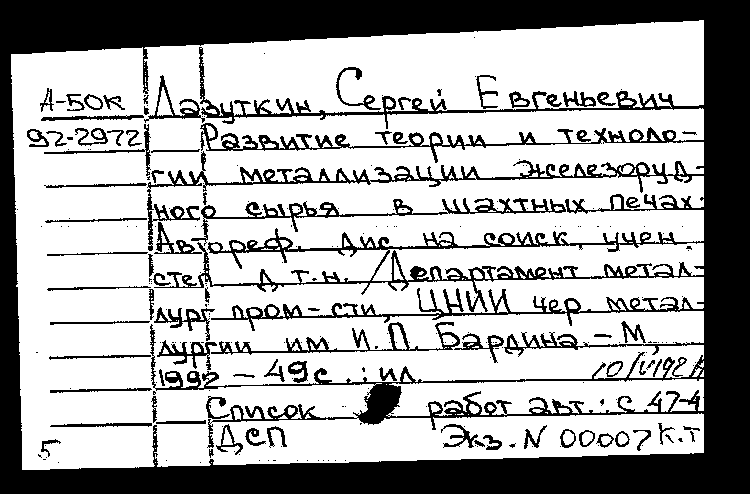 А-БОК Лазуткин, Сергей Евгеньевич
92-2972 Развитие теории и техноло-
гии металлизации железоруд-
ного сырья в шахтных печах:
Автореф. дис на соиск. учен.
степ д.т.н. / Департамент метал-
лург пром-сти, ЦНИИ чер. метал-
лургии им. И.П. Бардина. - М,
1992 - 49с .: ил.
Список работ авт.: с. 47-4
ДСП Экз. N 00007 К.т
5